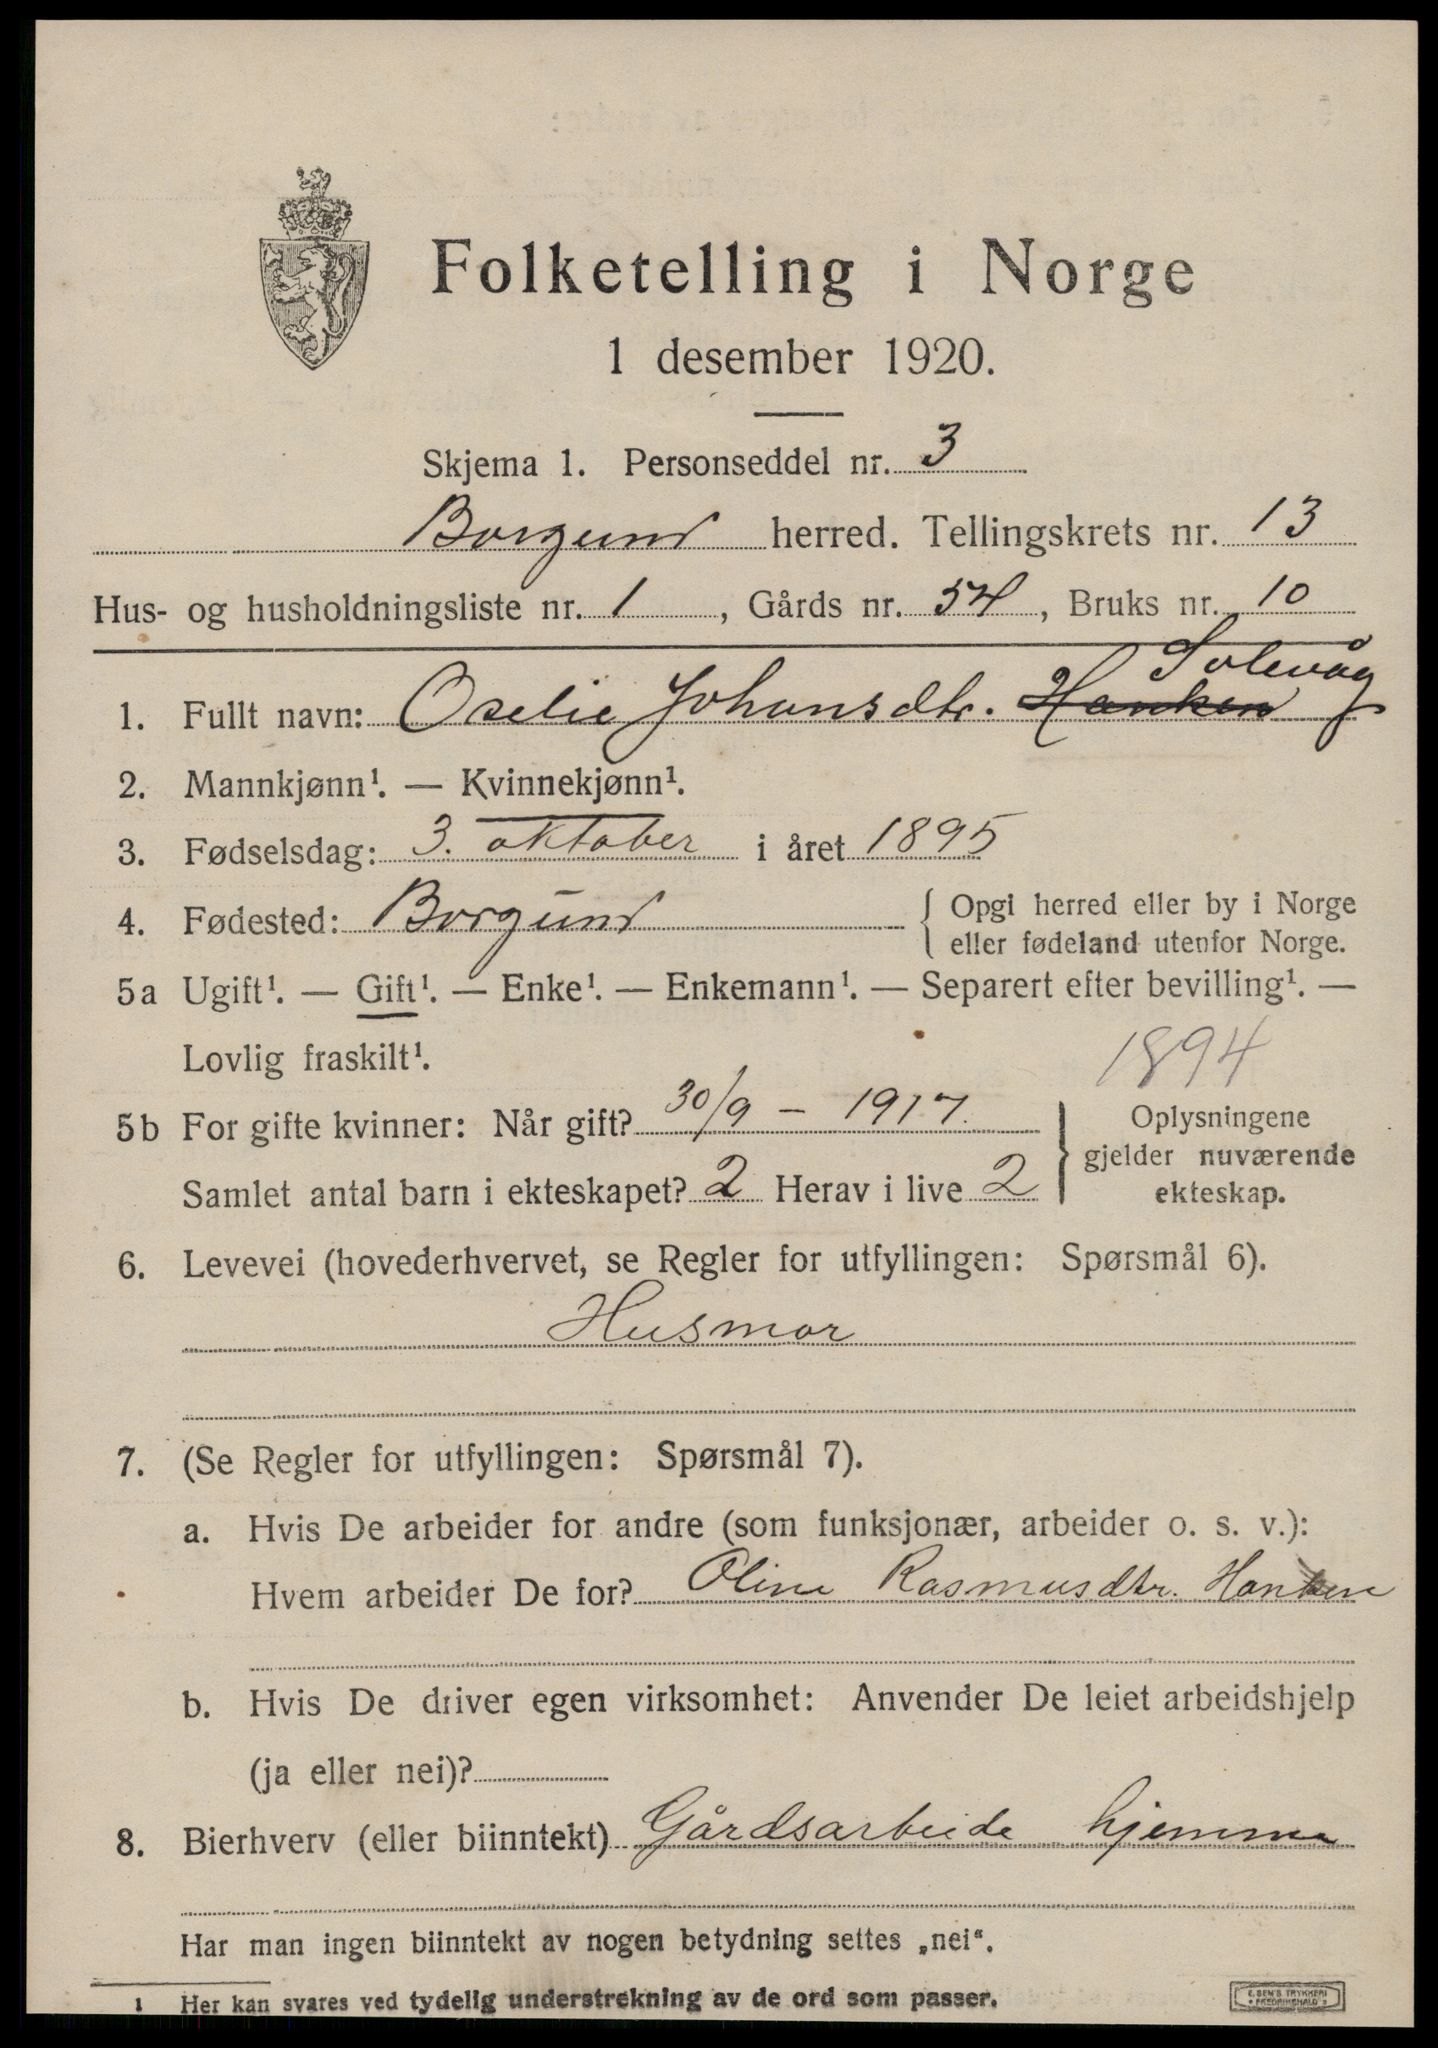 Folketelling i Norge
1 desember 1920.
Skjema 1. Personseddel nr. 3
Borgund herred. Tellingskrets nr. 13
Hus- og husholdningsliste nr. 1, Gårds nr. 54, Bruks nr. 10
Solevåg
1. Fullt navn: Oselie Johansdtr. Hanken
2. Mannkjønn¹. — Kvinnekjønn¹.
3. Fødselsdag: 3. oktober i året 1895
4. Fødested: Borgund { Opgi herred eller by i Norge
eller fødeland utenfor Norge.
5a Ugift¹. — Gift¹. — Enke¹. — Enkemann¹. — Separert efter bevilling¹. —
Lovlig fraskilt¹.
1894
5b For gifte kvinner: Når gift? 30/9 - 1917.
Samlet antal barn i ekteskapet? 2 Herav i live 2
} Oplysningene
gjelder nuværende
ekteskap.
6. Levevei (hovederhvervet, se Regler for utfyllingen: Spørsmål 6).
Husmor
7. (Se Regler for utfyllingen: Spørsmål 7).
a. Hvis De arbeider for andre (som funksjonær, arbeider o. s. v.):
Hvem arbeider De for? Oline Rasmusdtr. Hanken
b. Hvis De driver egen virksomhet: Anvender De leiet arbeidshjelp
(ja eller nei)?
8. Bierhverv (eller biinntekt) Gårdsarbeide hjemme
Har man ingen biinntekt av nogen betydning settes „nei“.
1 Her kan svares ved tydelig understrekning av de ord som passer.
E. SEM'S TRYKKERI
* FREDRIKSHALD *